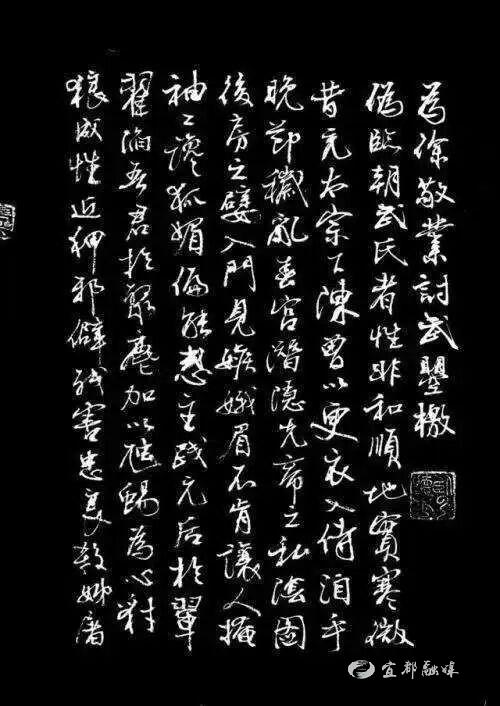 為徐敬業討武曌檄
偽臨朝武氏者性非和順地實寒微
昔充太宗下陳曾以更衣入侍洎乎
晚節穢亂春宮潛隱先帝之私陰圖
後房之嬖入門見嫉娥眉不肯讓人掩
袖工讒狐媚偏能惑主踐元后於翬
翟陷吾君於聚麀加以虺蜴為心豺
狼成性近狎邪僻殘害忠良殺姊屠
宜都融媒